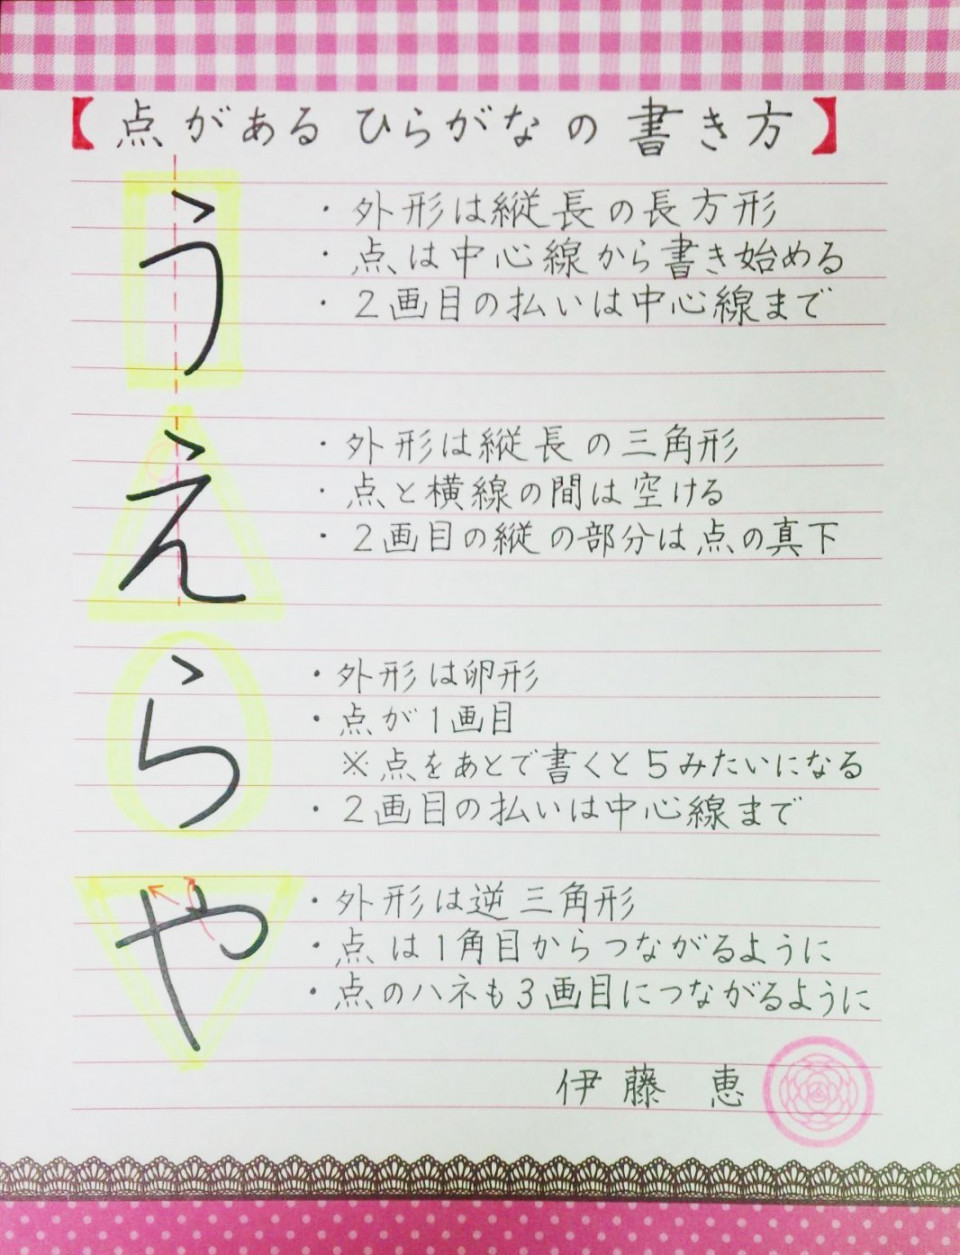 【点があるひらがなの書き方】
う
・外形は縦長の長方形
・点は中心線から書き始める
・2画目の払いは中心線まで
え
・外形は縦長の三角形
・点と横線の間は空ける
・2画目の縦の部分は点の真下
ら
・外形は卵形
・点が1画目
※点をあとで書くと5みたいになる
・2画目の払いは中心線まで
や
・外形は逆三角形
・点は1角目からつながるように
・点のハネも3画目につながるように
伊藤 恵